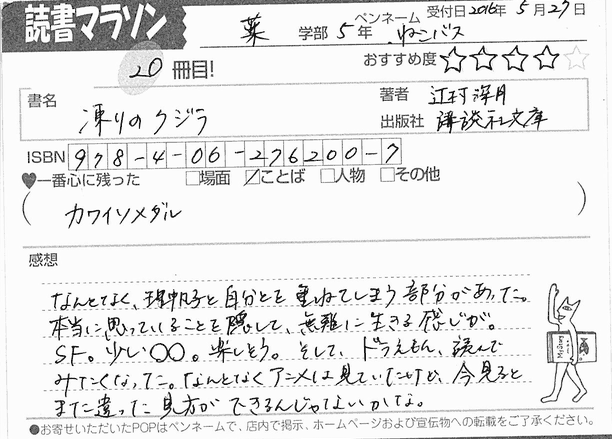 読書マラソン
薬 学部 5年 ペンネーム ねこバス 受付日2016年 5月27日
20 冊目!
おすすめ度 ☆☆☆☆☆
書名 凍りのクジラ
著者 辻村深月
出版社 講談社文庫
ISBN 978-4-06-276200-7
♥一番心に残った □場面 ☑ことば □人物 □その他
(カワイソメダル)
感想
なんとなく、理帆子と自分とを重ねてしまう部分があった。
本当に思っていることを隠して、無難に生きる感じが。
SF。少し○○。楽しそう。そして、ドラえもん、読んで
みたくなった。なんとなくアニメは見ていたけど、今見ると
また違った見方ができるんじゃないかな。
●お寄せいただいたPOPはペンネームで、店内で掲示、ホームページおよび宣伝物への転載をご了承ください。